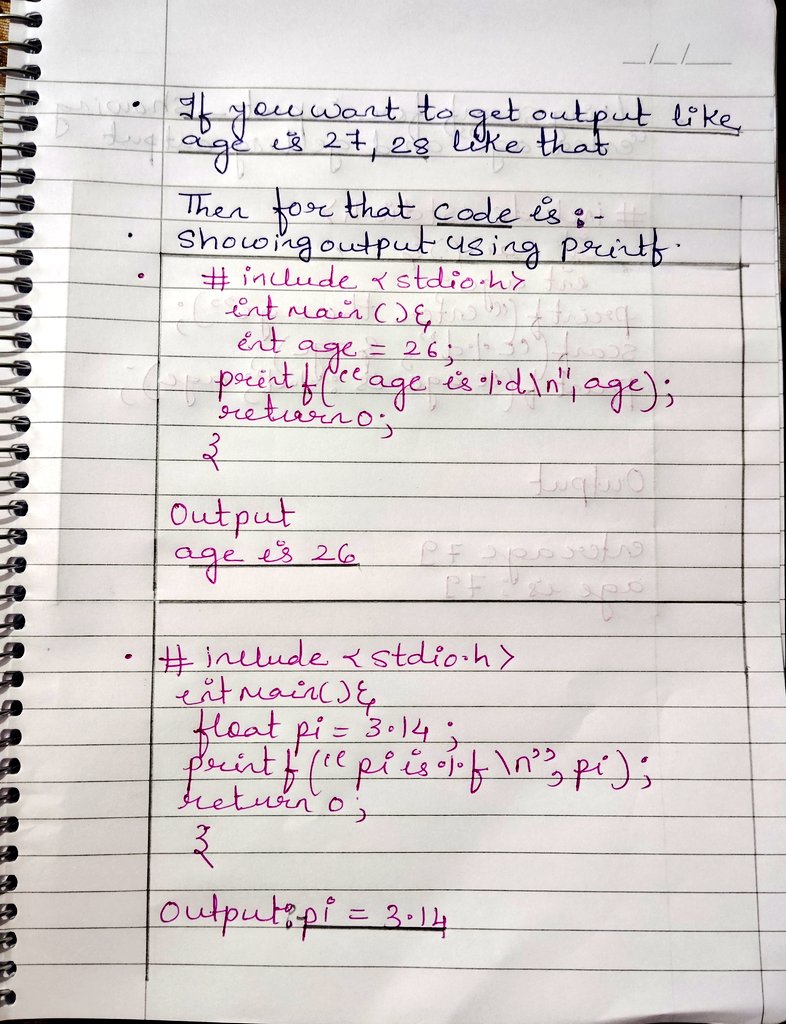 __/__/____
If you want to get output like
age is 27, 28 like that
Then for that code is :-
Showing output using printf.
# include <stdio.h>
int main () {
int age = 26;
printf("age is %d\n", age);
return 0;
}
Output
age is 26
# include <stdio.h>
int main() {
float pi = 3.14 ;
printf("pi is %f \n", pi);
return 0;
}
Output: pi = 3.14